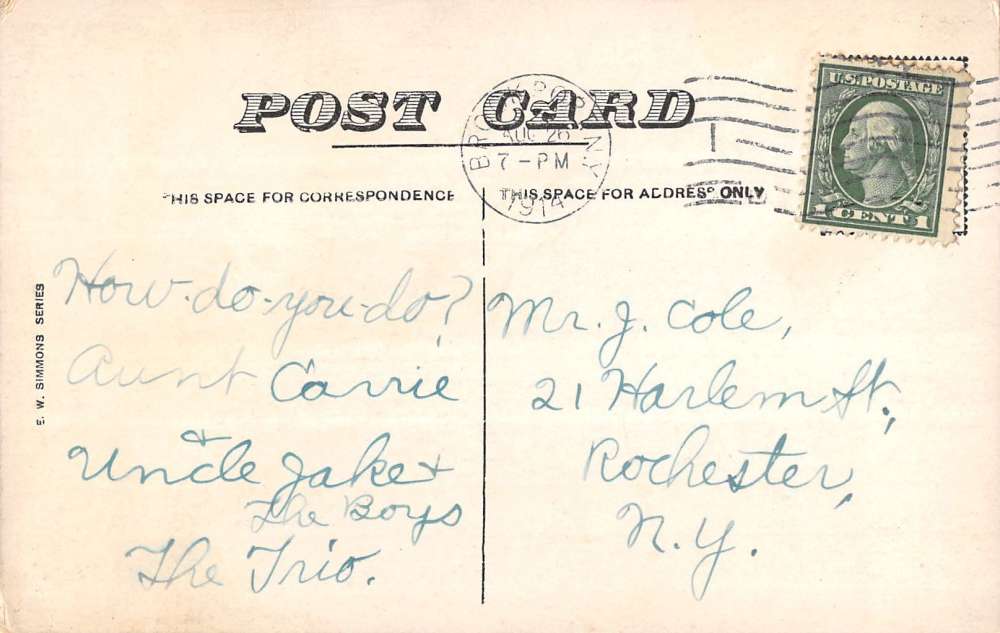 POST CARD
BROCKPORT NY
AUG 26
7-PM
1914
U.S. POSTAGE
1 CENT 1
THIS SPACE FOR CORRESPONDENCE
THIS SPACE FOR ADDRESS ONLY
E. W. SIMMONS SERIES
How-do-you-do?
Aunt Carrie
+
Uncle Jake +
The Boys
The Trio.
Mr. J. Cole,
21 Harlem St.,
Rochester,
N.Y.